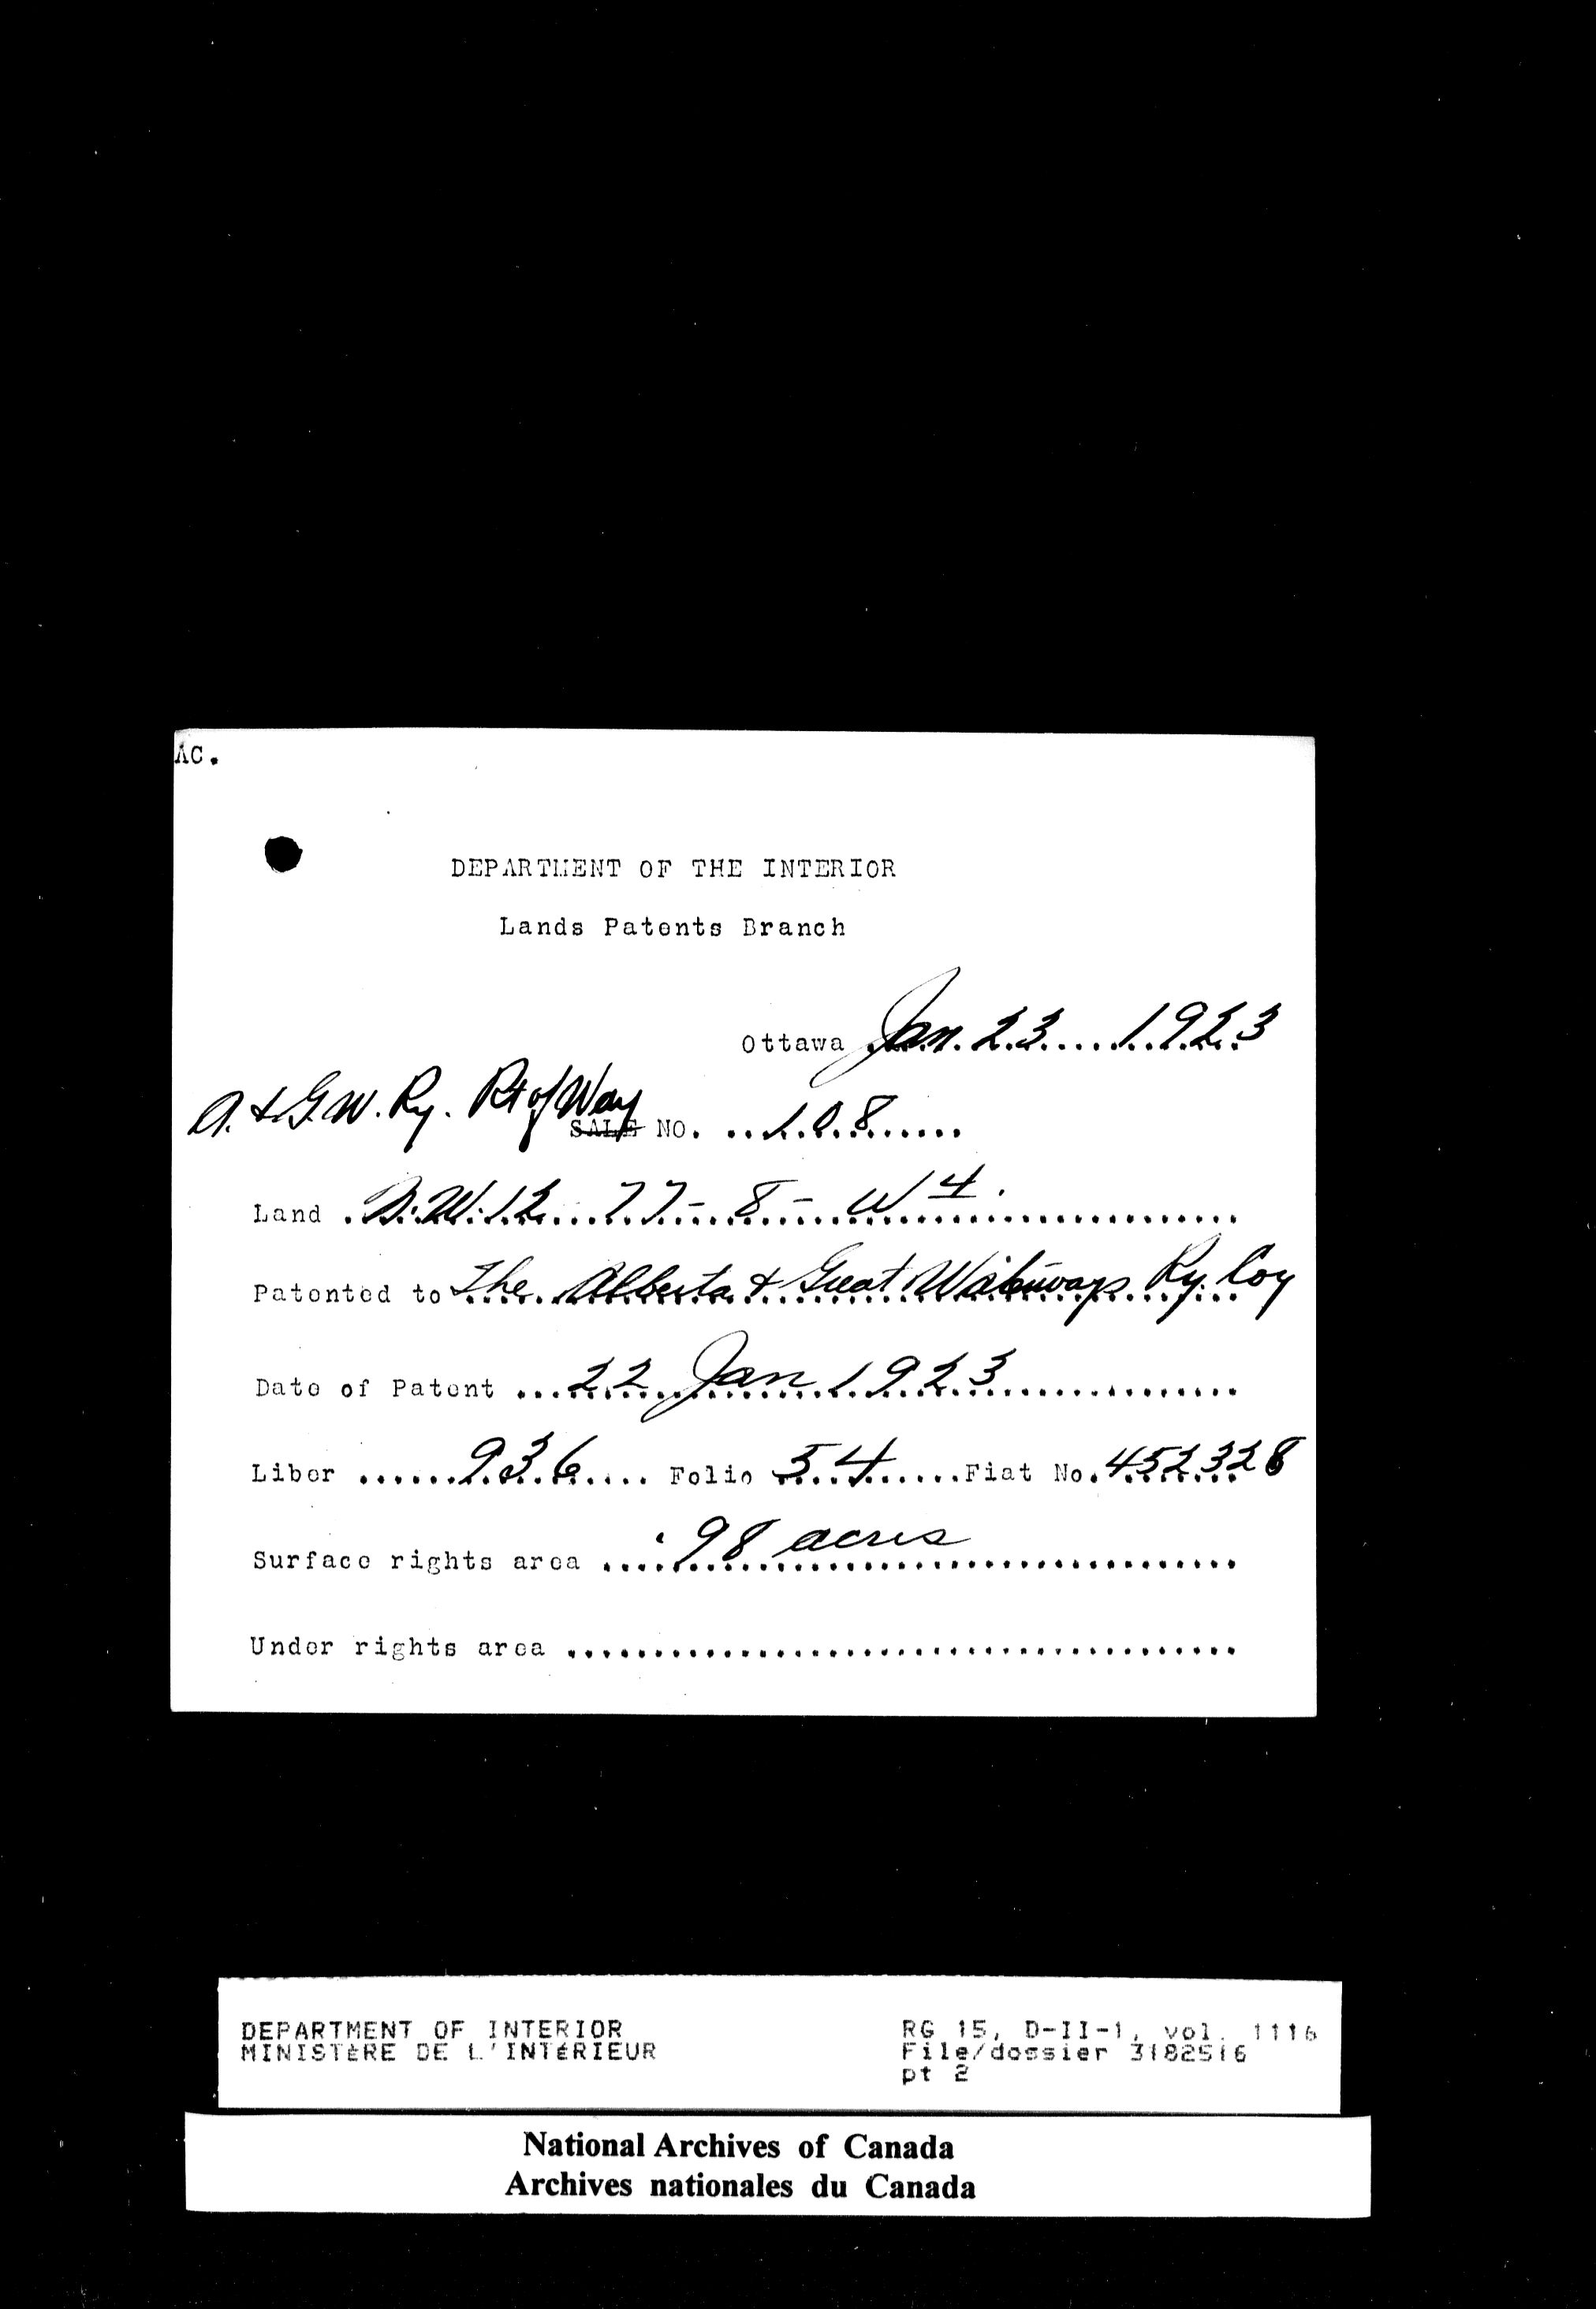 AC.
DEPARTMENT OF THE INTERIOR
Lands Patents Branch
Ottawa Jan. 23 1923
A. & G. W. Ry. Rt of Way
SALE NO. 108
Land 12 77-8-W 4.
Patented to The Alberta & Great Waterways Ry. Coy
Date of Patent 22 Jan 1923
Liber 936 Folio 54 Fiat No. 452328
Surface rights area .98 acres
Under rights area
DEPARTMENT OF INTERIOR
MINISTÈRE DE L'INTÉRIEUR
RG 15, D-II-1, vol. 1116
File/dossier 3182516
pt 2
National Archives of Canada
Archives nationales du Canada